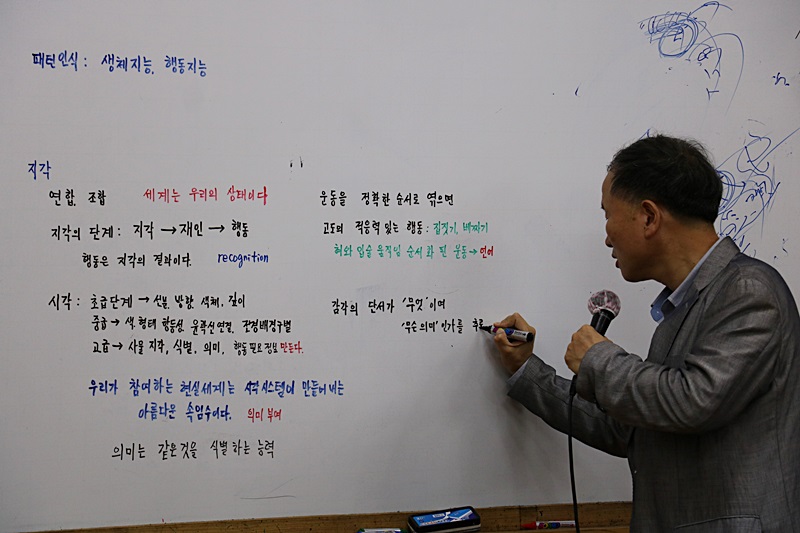 패턴인식 : 생체지능, 행동지능
지각
연합, 조합 세계는 우리의 상태이다
지각의 단계 : 지각 → 재인 → 행동
행동은 지각의 결과이다. recognition
시각 : 초급단계 → 선분, 방향, 색채, 깊이
중급 → 색, 형태, 윤곽선 연결, 전경배경구별
고급 → 사물 지각, 식별, 의미, 행동 필요 정보 만든다.
우리가 참여하는 현실세계는 시각시스템이 만들어 내는
아름다운 속임수이다. 의미 부여
의미는 같은것을 식별하는 능력
운동을 정확한 순서로 엮으면
고도의 적응력 있는 행동 : 집짓기,
혀와 입술 움직임 순서화 된 운동 → 언어
감각의 단서가 '무엇'이며
'무슨 의미'인가를 추로